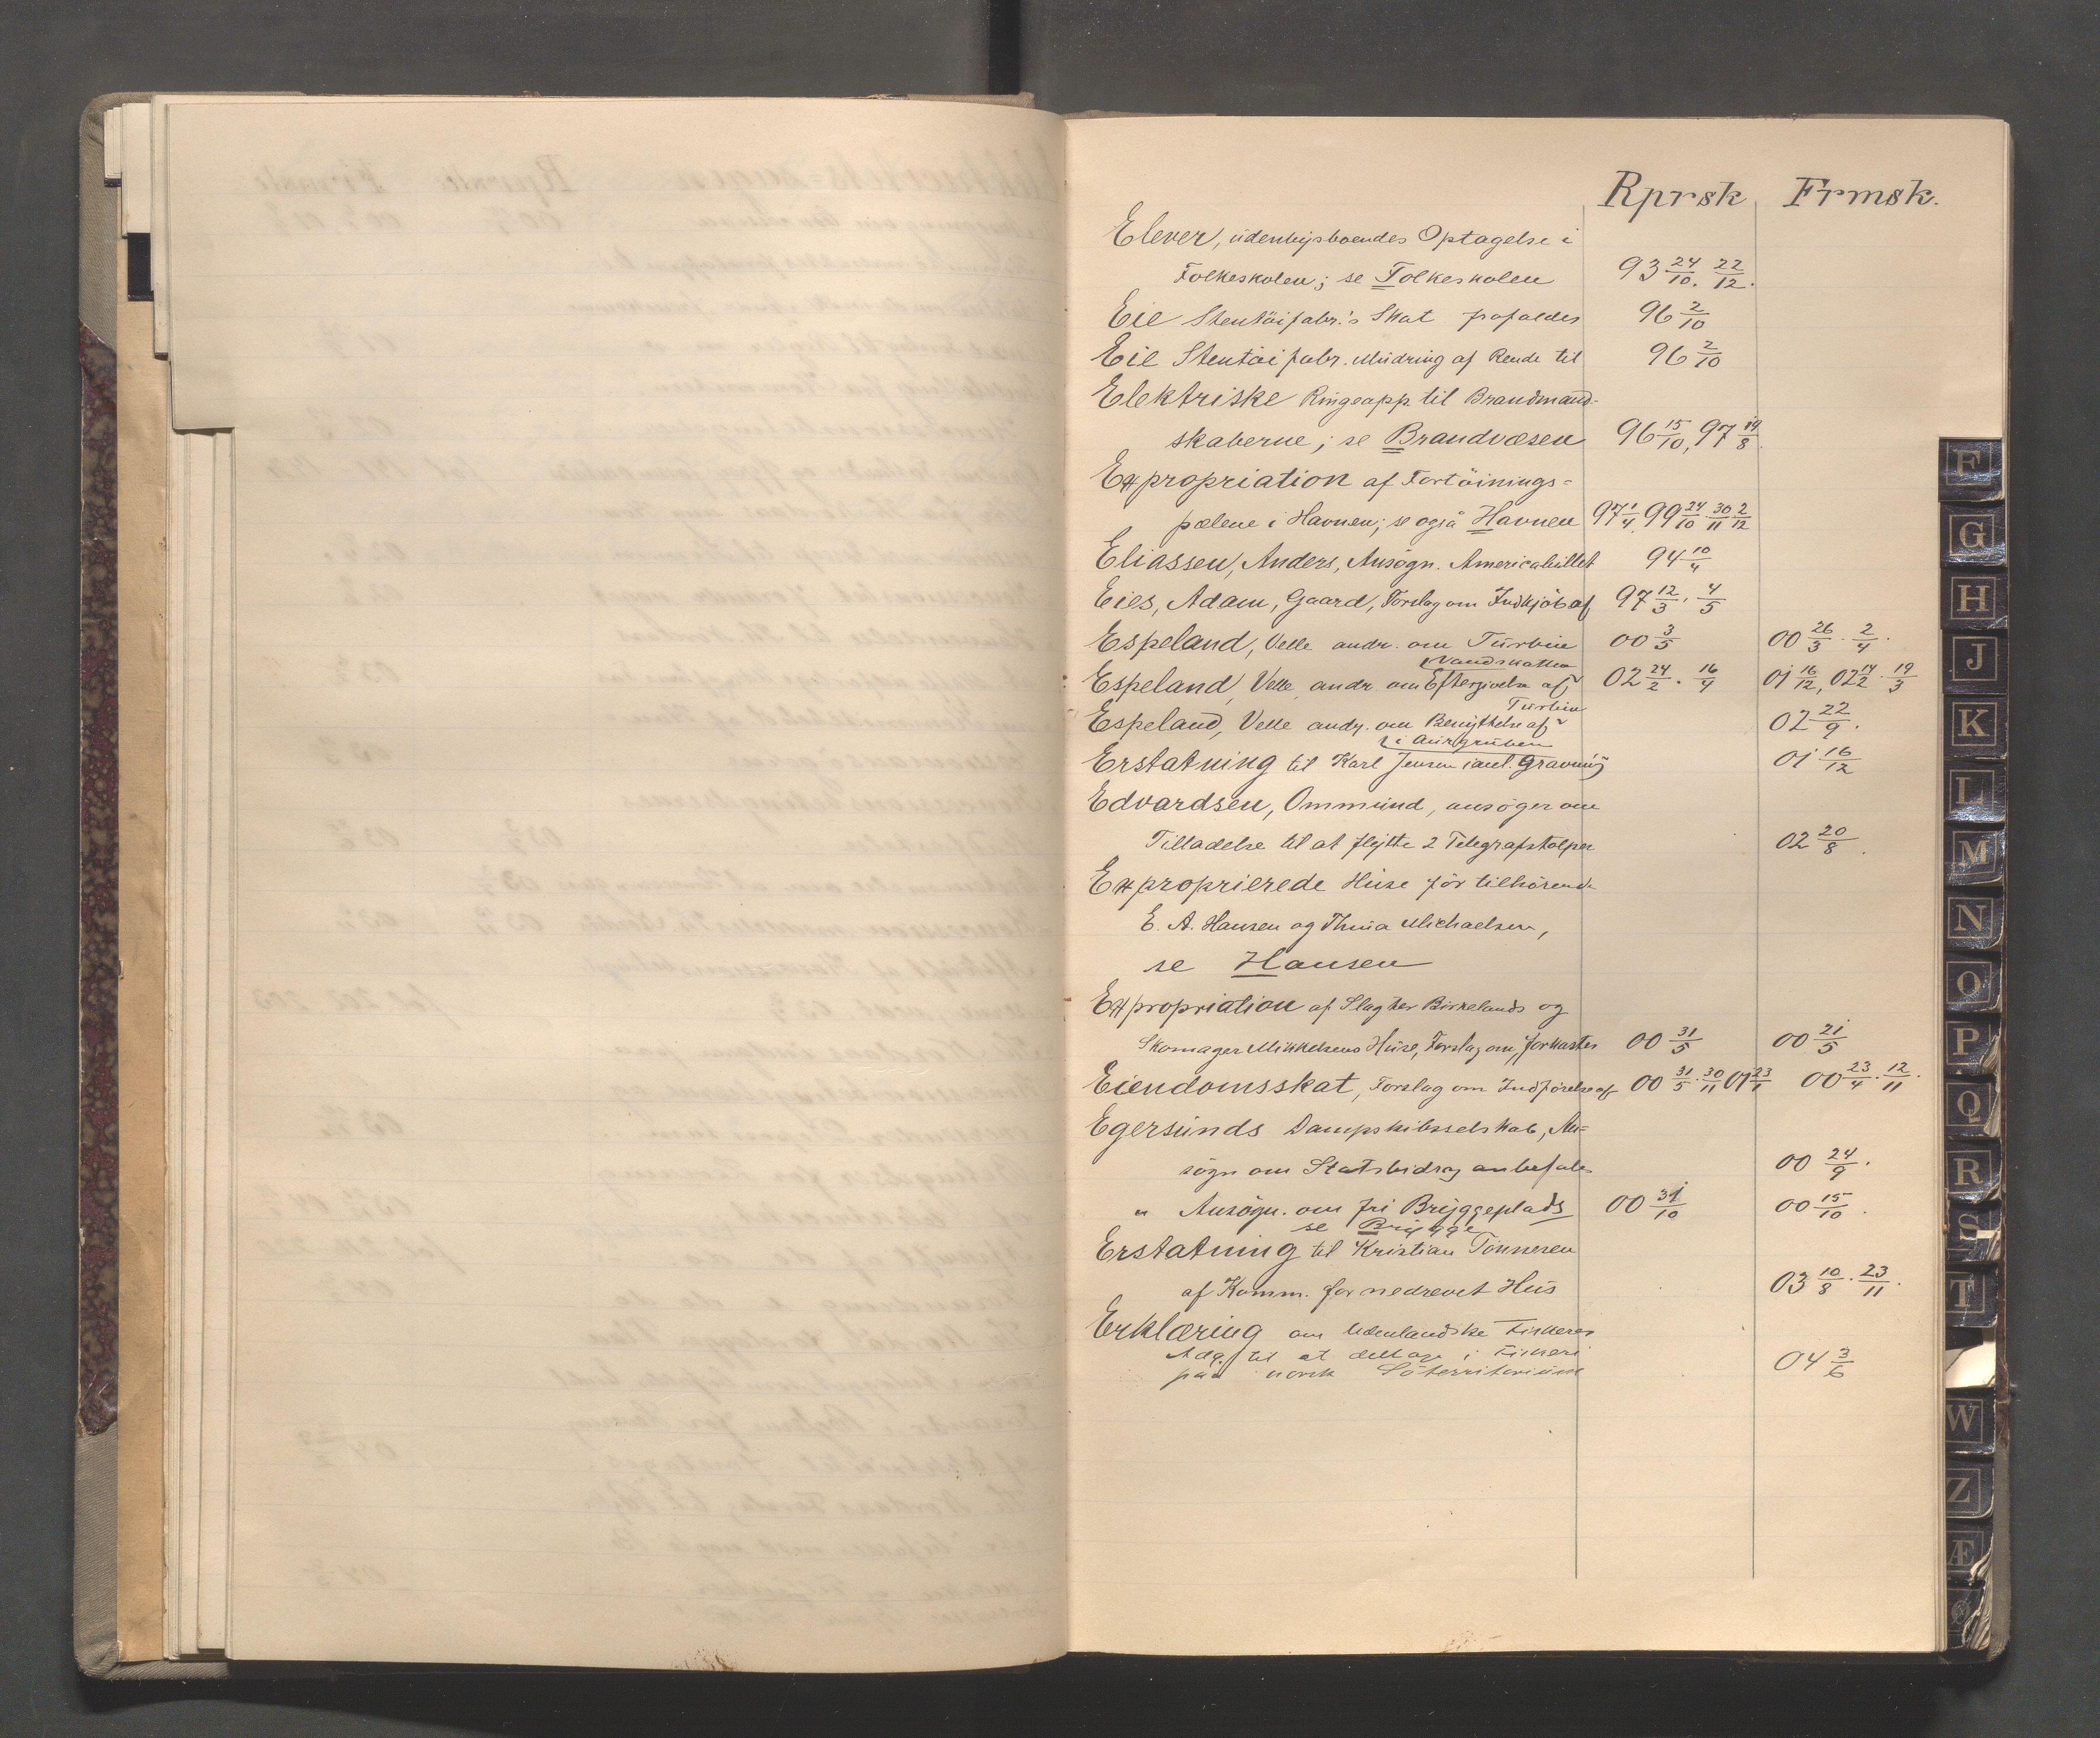 Rprsk Frmsk.
Elever, udenbysboendes Optagelse i
Folkeskolen; se Folkeskolen 93 24/10. 22/12.
Eie Stentöifabr.'s Skat frafaldes 96 2/10
Eie Stentöifabr. Mudring af Rende til 96 2/10
Elektriske Ringeapp. til Brandmand-
skaberne; se Brandvæsen 96 15/10, 97 19/8.
Expropriation af Fortöinings-
pælene i Havnen; se også Havnen 97 1/4 99 24/10 30/11 2/12
Eliassen, Anders, Ansögn. Americabillet 94 10/4
Eies, Adam, Gaard, Forslag om Indkjöb af 97 12/3. 4/5
Espeland, Velle andr. om Turbin 00 3/5 00 26/3. 2/4.
Vandskatten
Espeland, Velle andr. om Eftergivelse af 02 24/2. 16/4 01 16/12, 02 14/2. 19/3
Turbin
Espeland, Velle andr. om Benyttelse af 02 22/9.
i Aurgruben
Erstatning til Karl Jensen i anl. Gravning 01 16/12
Edvardsen, Ommund, ansöger om
Tilladelse til at flytte 2 Telegrafstolper 02 20/8.
Exproprierede Huse för tilhörende
E. A. Hansen og Thrina Michaelsen,
se Hansen
Expropriation af Slagter Birkelands og
Skomager Mikkelsens Huse, Forslag om, forkastes 00 31/5 00 21/5
Eiendomsskat, Forslag om Indförelse af 00 31/5. 30/11 01 23/1 00 23/4. 12/11.
Egersunds Dampskibsselskab, An-
sögn om Statsbidrag anbefales 00 24/9.
" Ansögn. om fri Bryggeplads 00 31/10 00 15/10.
se Brygge
Erstatning til Kristian Tönnesen
af Komm. for nedrevet Hus 03 10/8. 23/11.
Erklæring om Udenlandske Fiskeres
Adg. til at deltage i Fiskeri
paa norsk Söterritorium 04 3/6
F
G
H
J
K
L
M
N
O
P
Q
R
S
T
W
Z
Æ
Ø